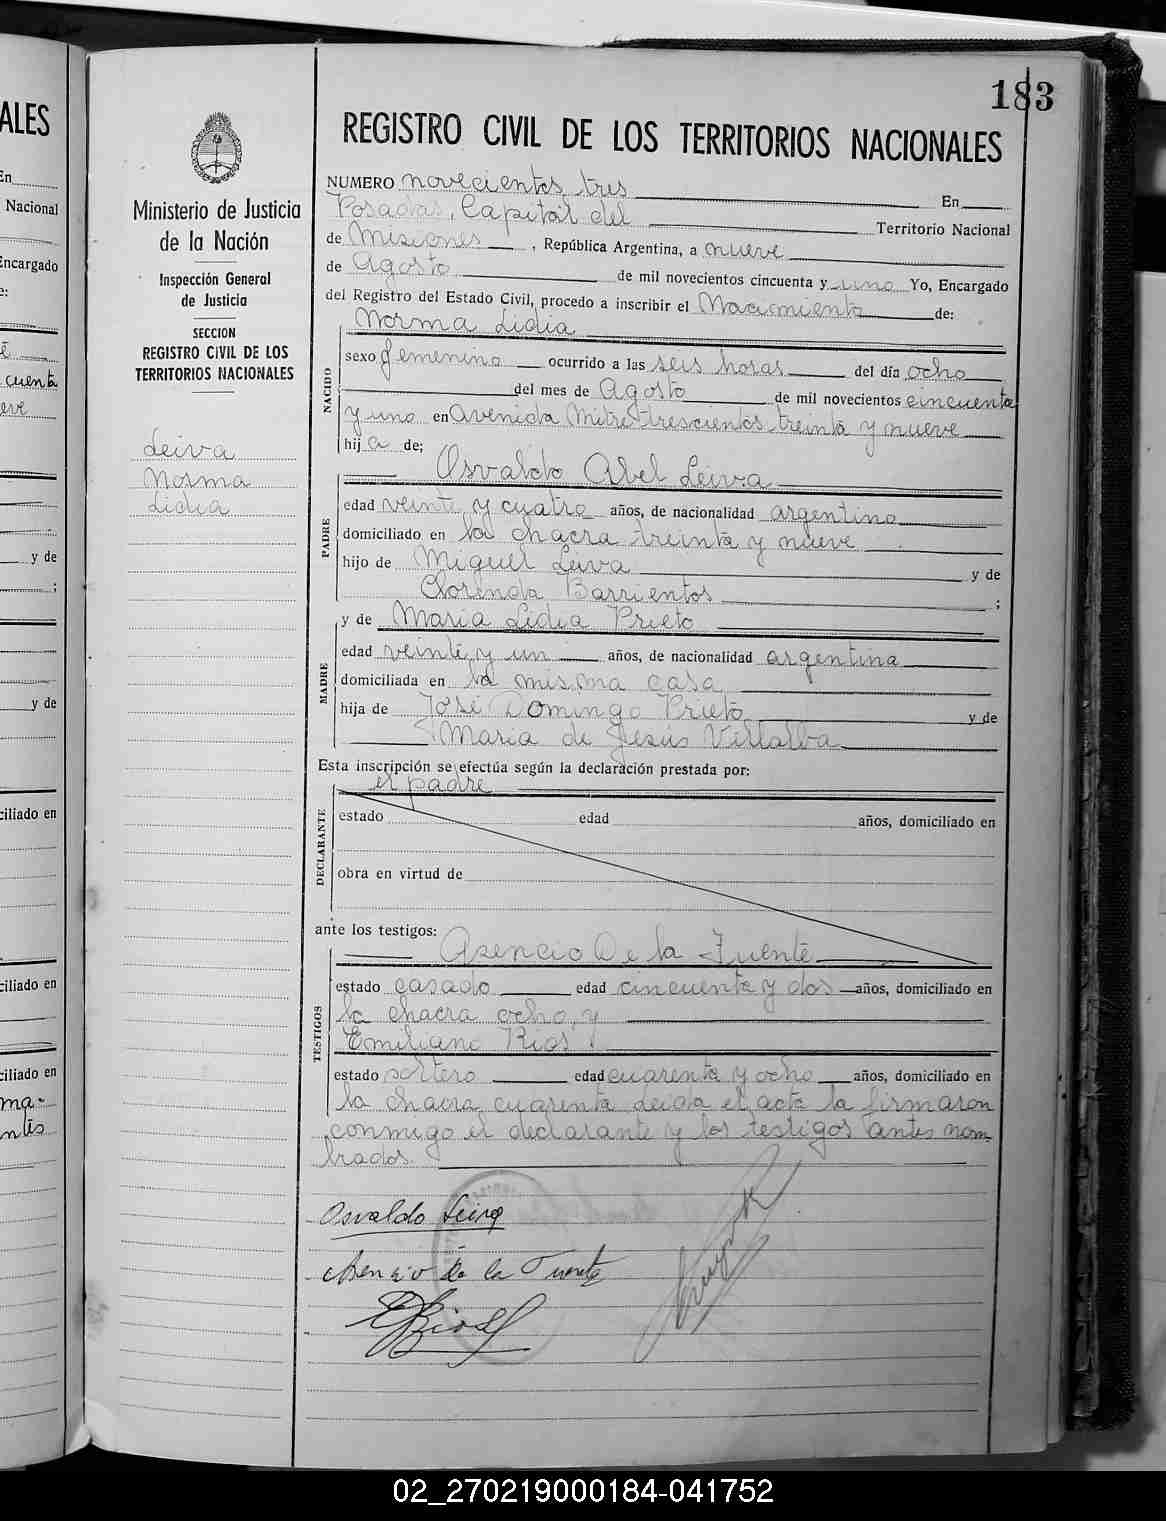 ALES
En
Nacional
Encargado
e:
cuenta
y de
;
y de
ciliado en
ciliado en
ciliado en
183
Ministerio de Justicia
de la Nación
Inspección General
de Justicia
SECCION
REGISTRO CIVIL DE LOS
TERRITORIOS NACIONALES
Leiva
Norma
Lidia
REGISTRO CIVIL DE LOS TERRITORIOS NACIONALES
NUMERO novecientos tres En
Posadas, Capital del Territorio Nacional
de Misiones, República Argentina, a nueve
de Agosto de mil novecientos cincuenta y uno Yo, Encargado
del Registro del Estado Civil, procedo a inscribir el Nacimiento de:
Norma Lidia
NACIDO
sexo femenino ocurrido a las seis horas del día ocho
del mes de Agosto de mil novecientos cincuenta
y uno en Avenida Mitre trescientos treinta y nueve
hija de;
Osvaldo Abel Leiva
PADRE
edad veinte y cuatro años, de nacionalidad argentino
domiciliado en la chacra treinta y nueve
hijo de Miguel Leiva y de
Clorenda Barrientos ;
y de Maria Lidia Prieto
MADRE
edad veinte y un años, de nacionalidad argentina
domiciliada en la misma casa
hija de José Domingo Prieto y de
Maria de Jesús Villalba
Esta inscripción se efectúa según la declaración prestada por:
el padre
DECLARANTE
estado edad años, domiciliado en
obra en virtud de
ante los testigos:
Asencio De la Fuente
TESTIGOS
estado casado edad cincuenta y dos años, domiciliado en
la chacra ocho, y
Emiliano Rios
estado soltero edad cuarenta y ocho años, domiciliado en
la chacra cuarenta Leida el acta la firmaron
conmigo el declarante y los testigos antes nom
brados.
Osvaldo Leiva
Asencio De la Fuente
E Rios
02_270219000184-041752